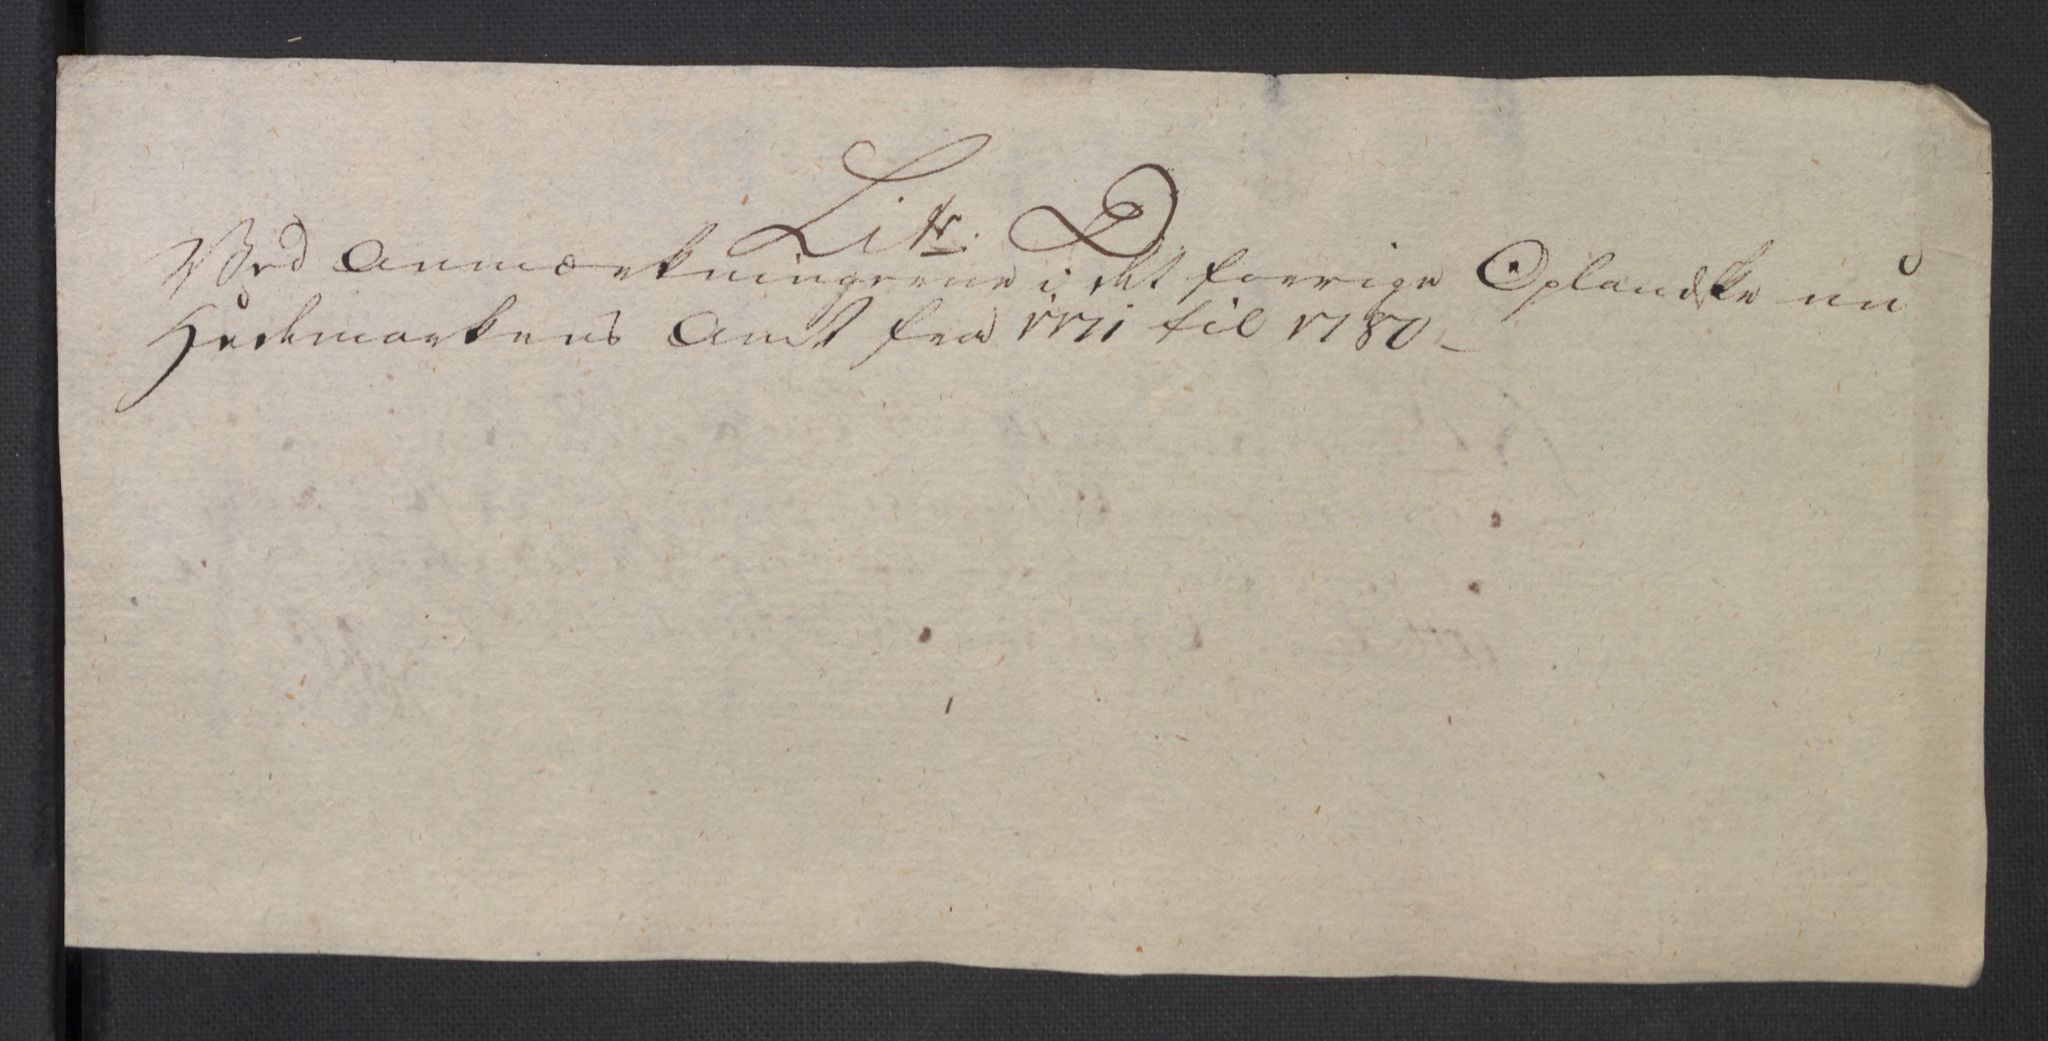 Litr. D
Ved Anmærkningerne i det forrige Oplandske nu
Hedemarkens Amt fra 1771 til 1780